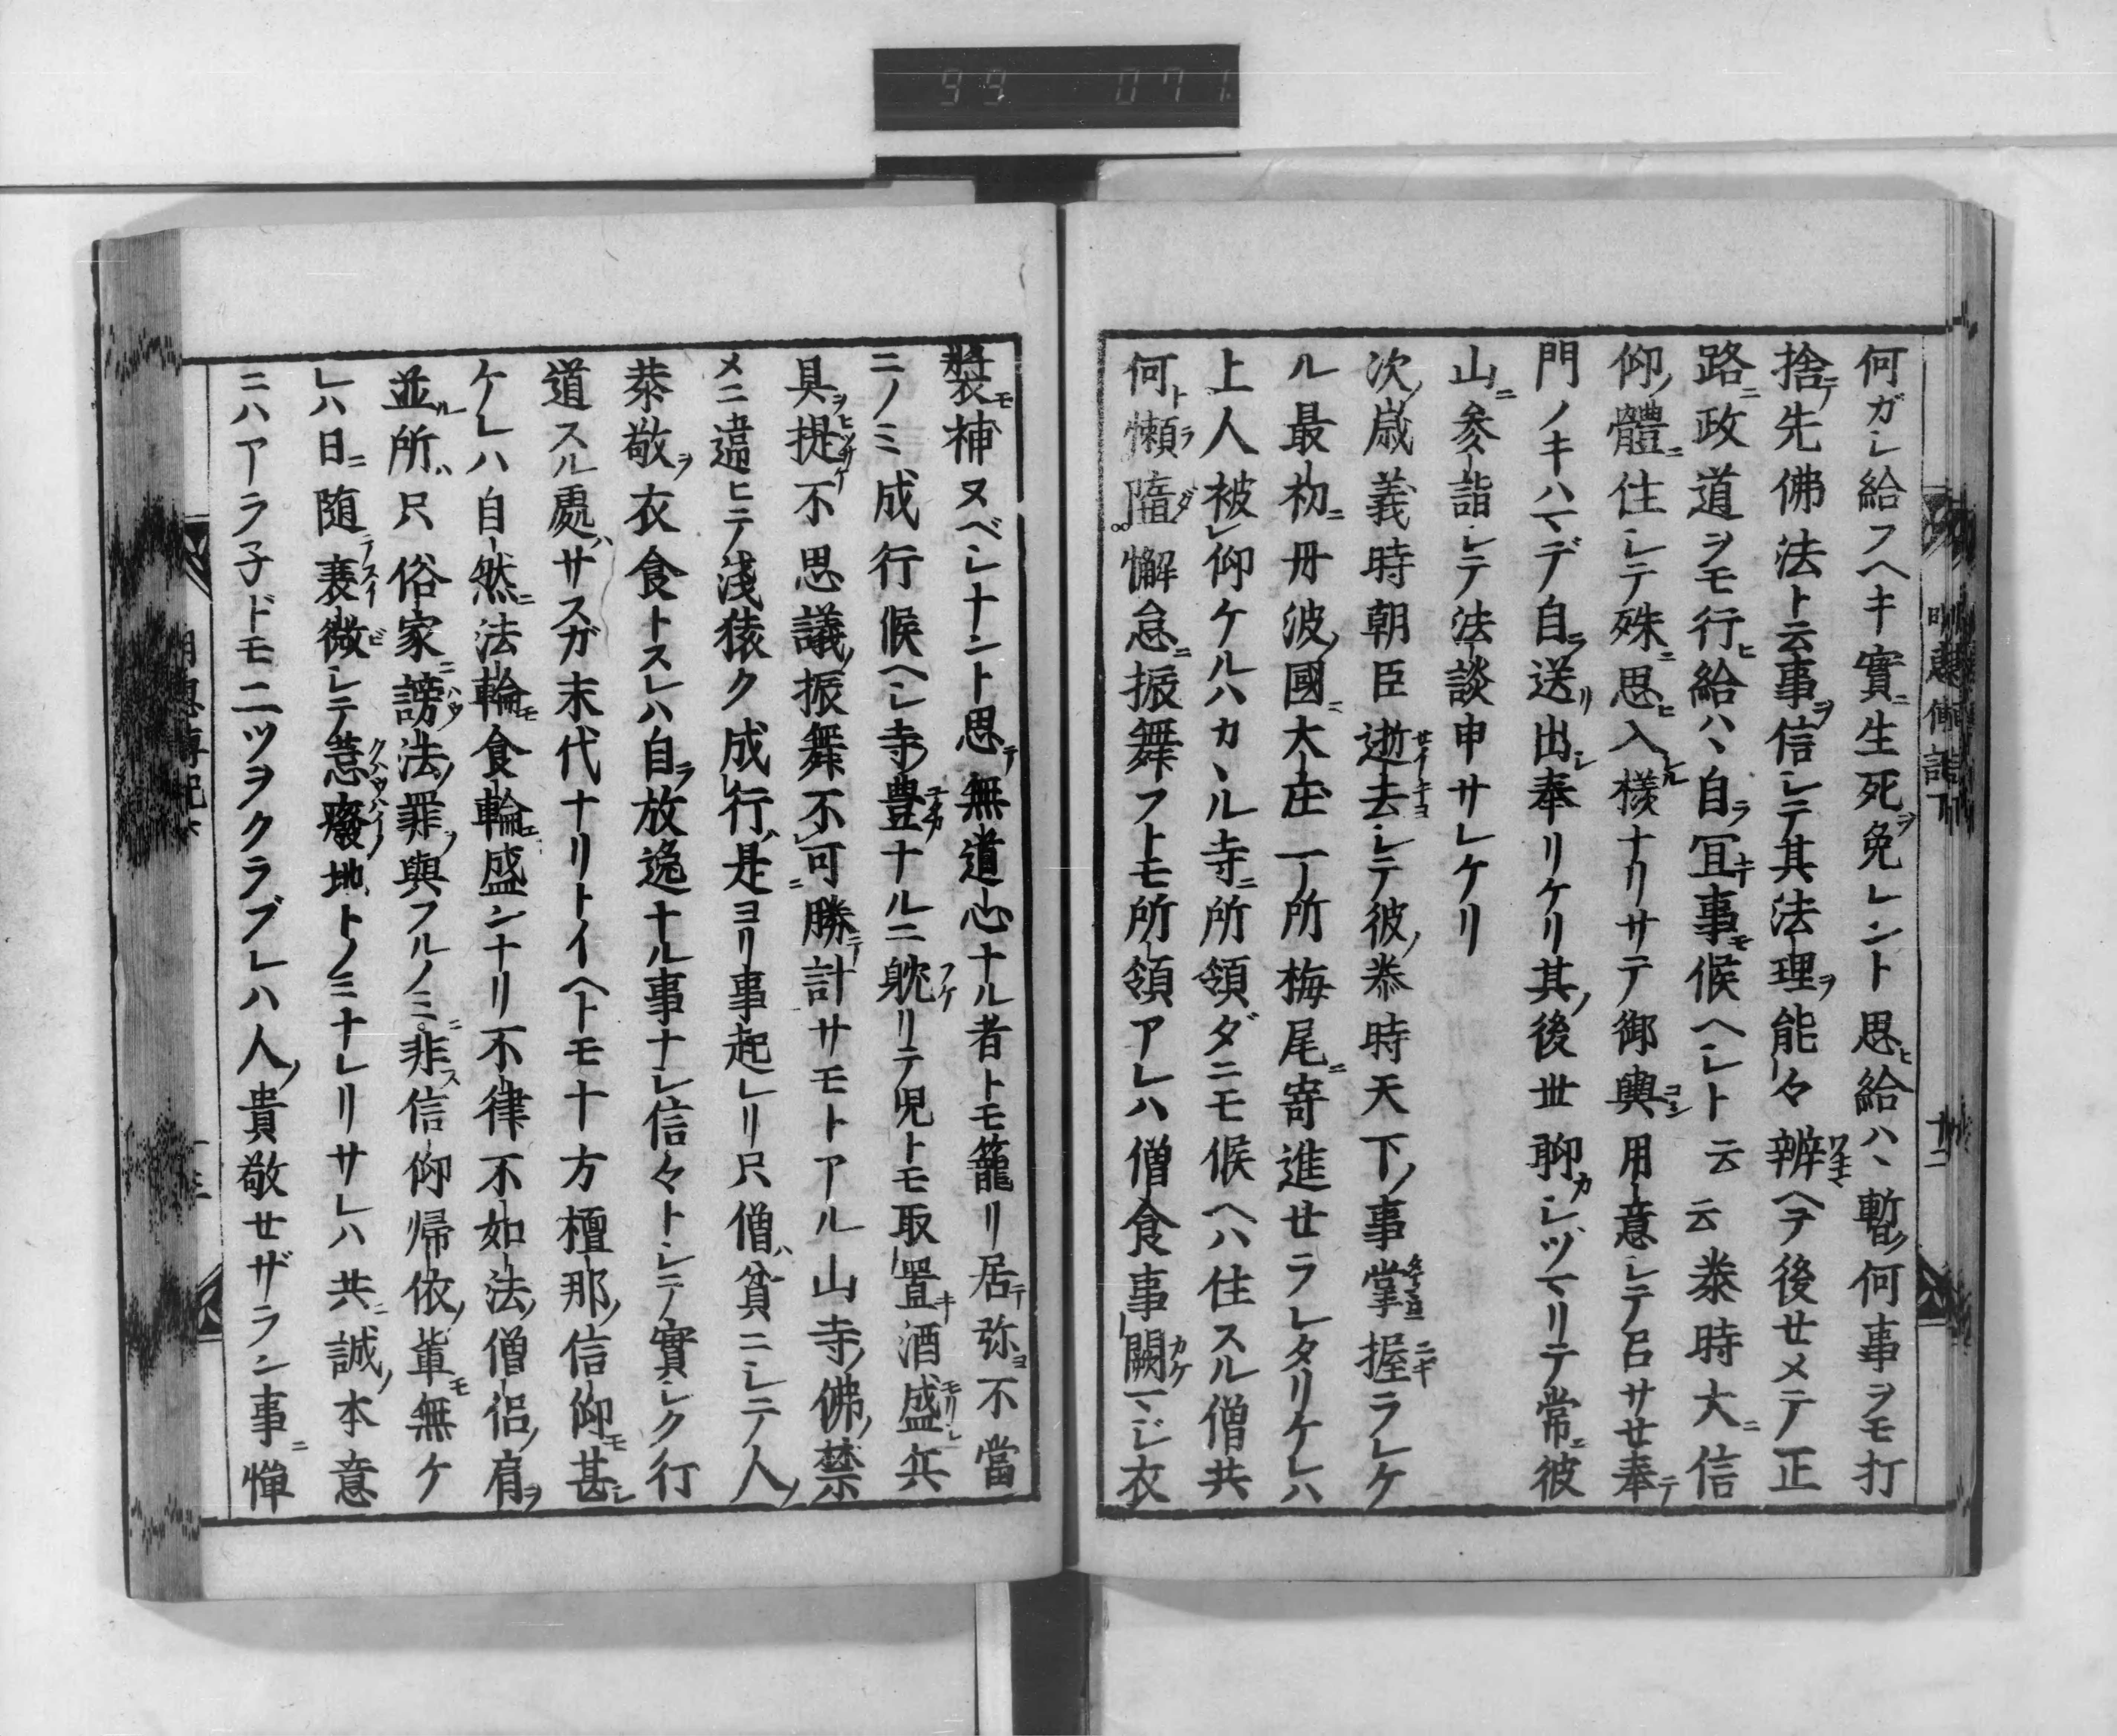 何ガシ給フヘキ實ニ生死ヲ免レント思ヒ給ハヽ暫ク何事ヲモ打
捨テ先佛法ト云事ヲ信シテ其法理ヲ能々辨ワキマヘテ後せメテ正
路ニ政道ヲモ行ヒ給ハヽ自ラ冝キ事モ候ヘシト云云泰時大ニ信
仰ノ體ニ住シテ殊ニ思ヒ入レル様ナリサテ御輿コシ用意シテ召サせ奉テ
門ノキハマデ自ラ送リ出シ奉リケリ其ノ後丗聊カシヅマリテ常ニ彼
山ニ參詣シテ法談申サレケリ
次ノ歳義時朝臣逝去せイキヨシテ彼ノ泰時天下ノ事掌タナコヽロニ握ニキラレケ
ル最初ニ丹波ノ國ニ大庄一所梅尾ニ寄進せラレタリケレハ
上人被レ仰ケルハカヽル寺ニ所領ダニモ候ヘハ住スル僧共
何ト懶ラ隨ダ懈怠ニ振舞フトモ所領アレハ僧食事闕カケマジ衣
裝モ補ヌベシナント思テ無道心ナル者トモ籠リ居テ弥ヨ不當
ニノミ成行候ヘシ寺ノ豊ユタカナルニ躭フケリテ児トモ取置キ酒盛モリシ兵
具ヲ提ヒツサケ不思議ノ振舞不可ニ勝テ計サモトアル山寺ノ佛ノ禁
メニ違ヒテ淺猿ク成行ハ是ヨリ事起レリ只僧ハ貧ニシテ人ノ
恭敬ヲ衣食トスレハ自ラ放逸ナル事ナシ信々トシテ實シク行
道スル處ハサスガ末代ナリトイヘトモ十方檀那ノ信仰モ甚シ
ケレハ自然ニ法輪モ食輪モ盛ンナリ不律不如法ノ僧侶ノ肩ヲ
並ル所ハ只俗家ニ謗ハウ法ノ罪ヲ與フルノミニ非ス信仰帰依ノ輩モ無ケ
レハ日ニ随テ衰スイ微ビシテ荒クハウ廢ハイノ地トノミナレリサレハ共ニ誠ノ本意
ニハアラ子ドモ二ツヲクラブレハ人ノ貴敬せザラン事ニ憚
明恵傳記下
十二